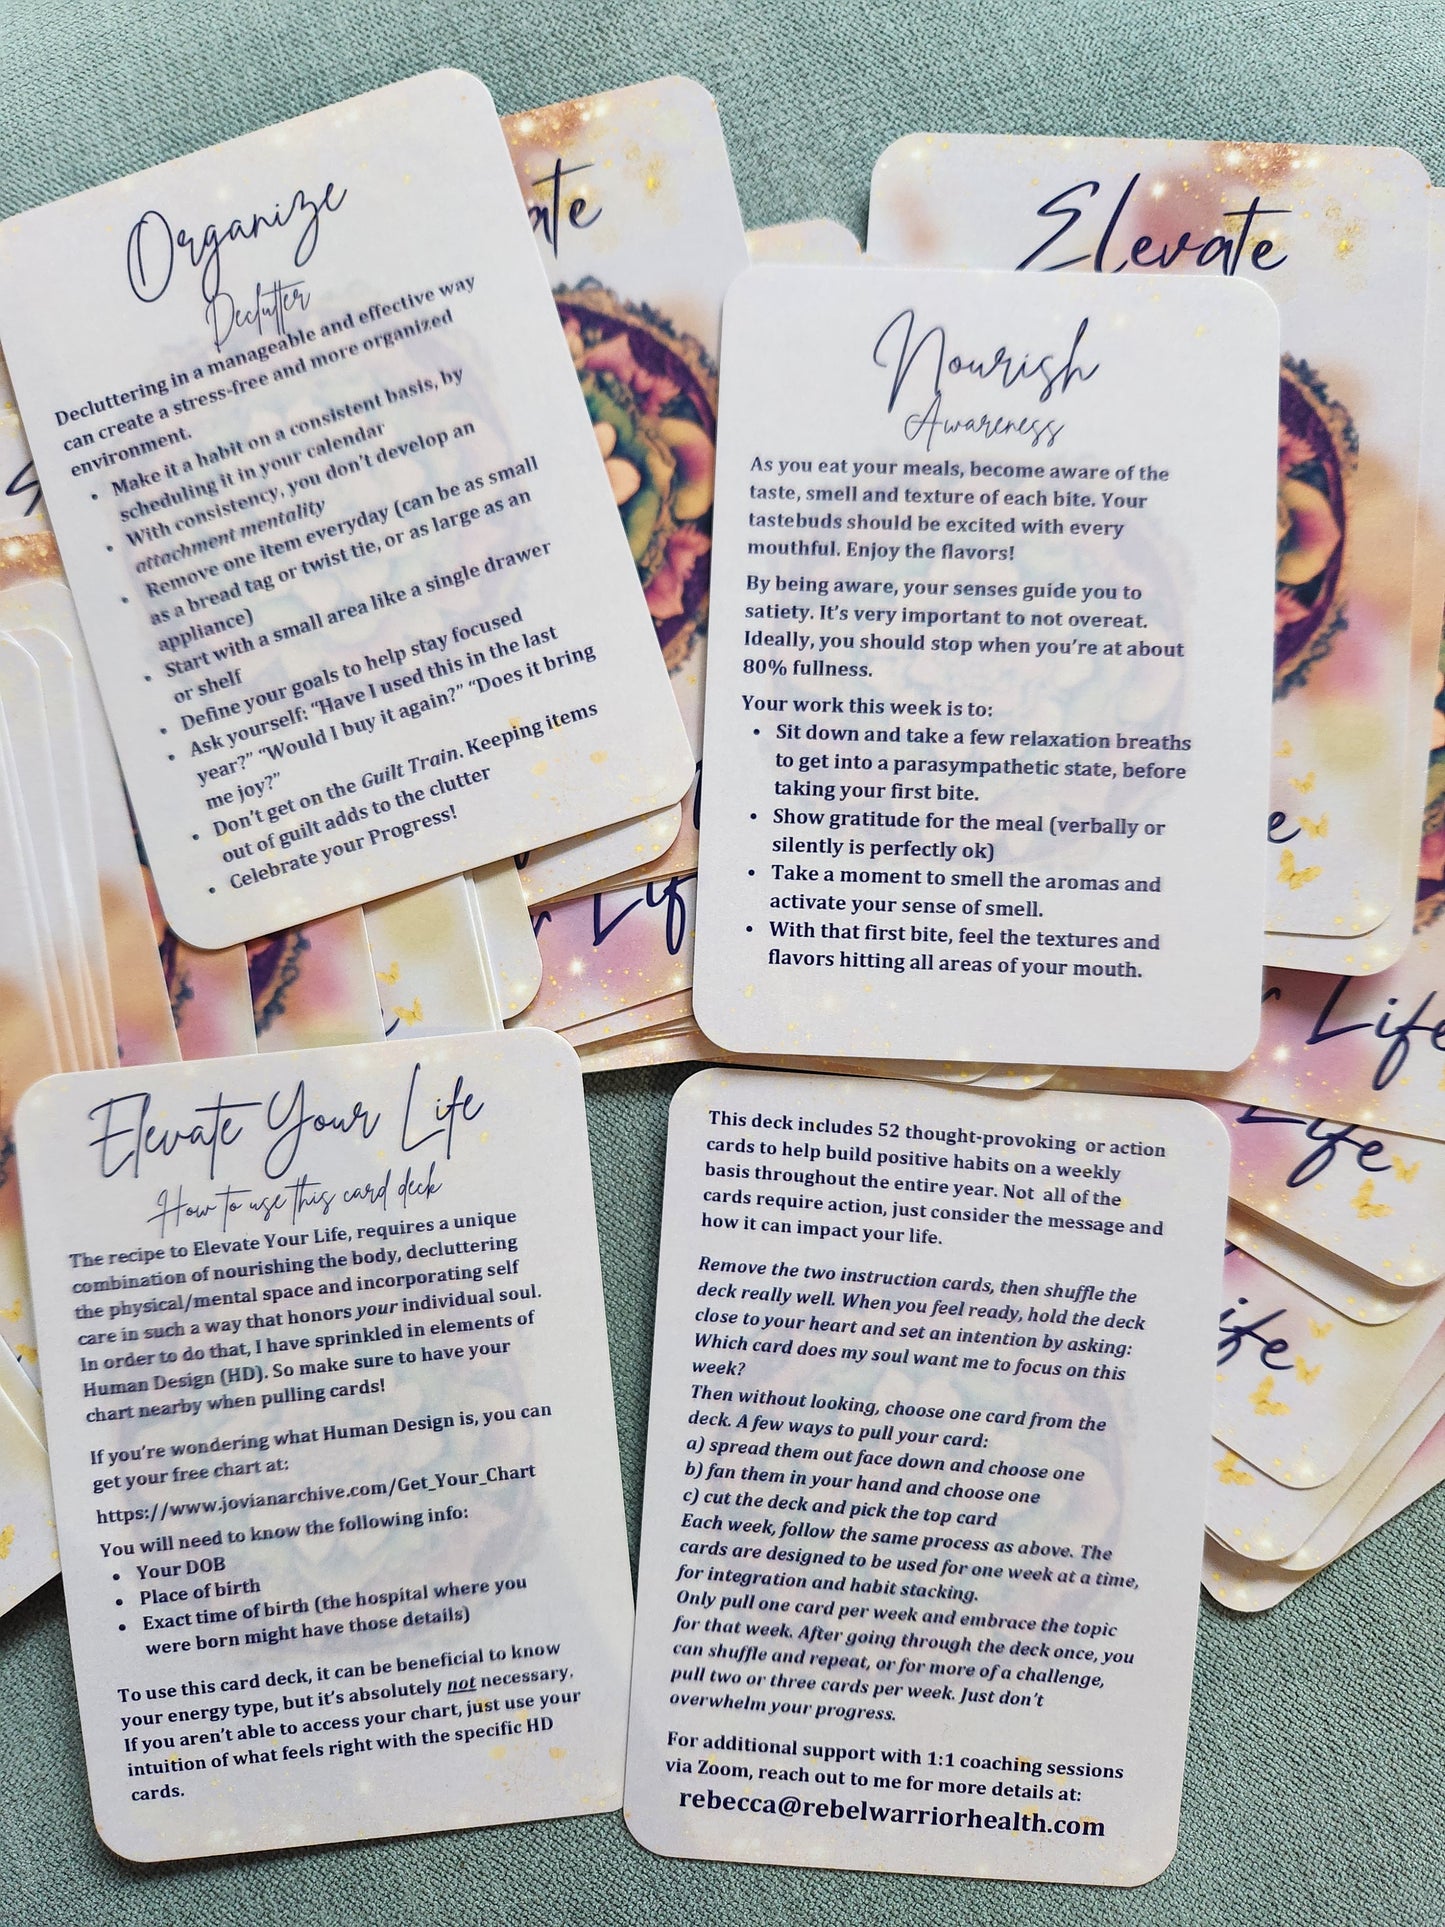 Organize
Declutter
Decluttering in a manageable and effective way
can create a stress-free and more organized
environment.
• Make it a habit on a consistent basis, by
scheduling it in your calendar
• With consistency, you don't develop an
attachment mentality
• Remove one item everyday (can be as small
as a bread tag or twist tie, or as large as an
appliance)
• Start with a small area like a single drawer
or shelf
• Define your goals to help stay focused
• Ask yourself: "Have I used this in the last
year?" "Would I buy it again?" "Does it bring
me joy?"
• Don't get on the Guilt Train. Keeping items
out of guilt adds to the clutter
• Celebrate your Progress!
Elevate
Nourish
Awareness
As you eat your meals, become aware of the
taste, smell and texture of each bite. Your
tastebuds should be excited with every
mouthful. Enjoy the flavors!
By being aware, your senses guide you to
satiety. It's very important to not overeat.
Ideally, you should stop when you're at about
80% fullness.
Your work this week is to:
• Sit down and take a few relaxation breaths
to get into a parasympathetic state, before
taking your first bite.
• Show gratitude for the meal (verbally or
silently is perfectly ok)
• Take a moment to smell the aromas and
activate your sense of smell.
• With that first bite, feel the textures and
flavors hitting all areas of your mouth.
Life
Life
Life
Life
Elevate Your Life
How to use this card deck
The recipe to Elevate Your Life, requires a unique
combination of nourishing the body, decluttering
the physical/mental space and incorporating self
care in such a way that honors your individual soul.
In order to do that, I have sprinkled in elements of
Human Design (HD). So make sure to have your
chart nearby when pulling cards!
If you're wondering what Human Design is, you can
get your free chart at:
https://www.jovianarchive.com/Get_Your_Chart
You will need to know the following info:
• Your DOB
• Place of birth
• Exact time of birth (the hospital where you
were born might have those details)
To use this card deck, it can be beneficial to know
your energy type, but it's absolutely not necessary.
If you aren't able to access your chart, just use your
intuition of what feels right with the specific HD
cards.
This deck includes 52 thought-provoking or action
cards to help build positive habits on a weekly
basis throughout the entire year. Not all of the
cards require action, just consider the message and
how it can impact your life.
Remove the two instruction cards, then shuffle the
deck really well. When you feel ready, hold the deck
close to your heart and set an intention by asking:
Which card does my soul want me to focus on this
week?
Then without looking, choose one card from the
deck. A few ways to pull your card:
a) spread them out face down and choose one
b) fan them in your hand and choose one
c) cut the deck and pick the top card
Each week, follow the same process as above. The
cards are designed to be used for one week at a time,
for integration and habit stacking.
Only pull one card per week and embrace the topic
for that week. After going through the deck once, you
can shuffle and repeat, or for more of a challenge,
pull two or three cards per week. Just don't
overwhelm your progress.
For additional support with 1:1 coaching sessions
via Zoom, reach out to me for more details at:
rebecca@rebelwarriorhealth.com